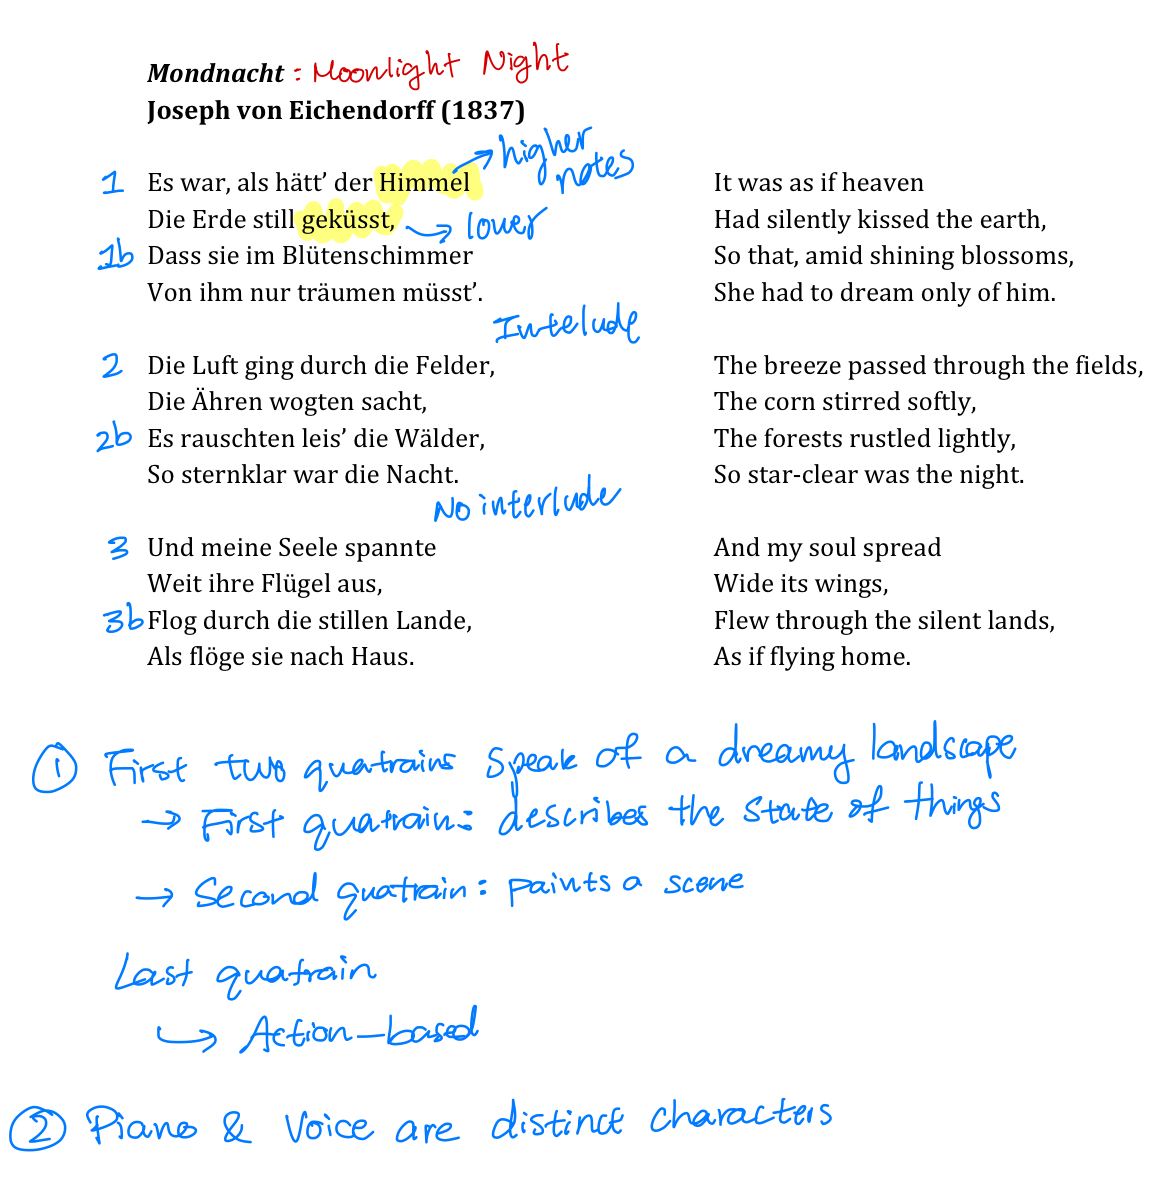 Mondnacht : Moonlight Night
Joseph von Eichendorff (1837)
→ higher notes
1 Es war, als hätt’ der Himmel
Die Erde still geküsst, → lower
1b Dass sie im Blütenschimmer
Von ihm nur träumen müsst’.
Intelude
2 Die Luft ging durch die Felder,
Die Ähren wogten sacht,
2b Es rauschten leis’ die Wälder,
So sternklar war die Nacht.
No interlude
3 Und meine Seele spannte
Weit ihre Flügel aus,
3b Flog durch die stillen Lande,
Als flöge sie nach Haus.
It was as if heaven
Had silently kissed the earth,
So that, amid shining blossoms,
She had to dream only of him.
The breeze passed through the fields,
The corn stirred softly,
The forests rustled lightly,
So star-clear was the night.
And my soul spread
Wide its wings,
Flew through the silent lands,
As if flying home.
① First two quatrains speak of a dreamy landscape
→ First quatrain: describes the state of things
→ Second quatrain: paints a scene
Last quatrain
↳ Action-based
② Piano & Voice are distinct characters